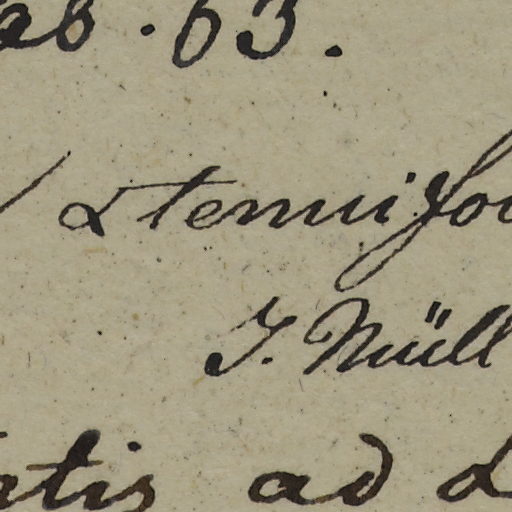 ab. 63.
α tenuifo
J. Müll
atis ad